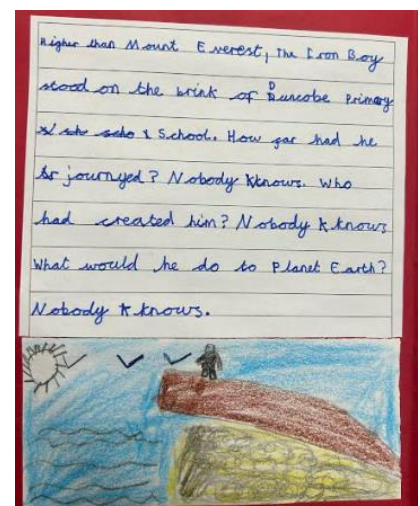 Higher than Mount Everest, The Iron Boy
stood on the brink of Duncobe Primary
School. How far had he
journyed? Nobody Knows. Who
had created him? Nobody knows
What would he do to Planet Earth?
Nobody knows.